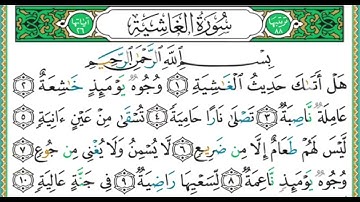 سُورَةُ الْغَاشِيَةِ
بِسْمِ اللَّهِ الرَّحْمَٰنِ الرَّحِيمِ
هَلْ أَتَىٰكَ حَدِيثُ الْغَٰشِيَةِ ١ وُجُوهٌ يَوْمَئِذٍ خَٰشِعَةٌ ٢
عَامِلَةٌ نَّاصِبَةٌ ٣ تَصْلَىٰ نَارًا حَامِيَةً ٤ تُسْقَىٰ مِنْ عَيْنٍ ءَانِيَةٍ ٥
لَّيْسَ لَهُمْ طَعَامٌ إِلَّا مِن ضَرِيعٍ ٦ لَّا يُسْمِنُ وَلَا يُغْنِي مِن جُوعٍ ٧
وُجُوهٌ يَوْمَئِذٍ نَّاعِمَةٌ ٨ لِّسَعْيِهَا رَاضِيَةٌ ٩ فِي جَنَّةٍ عَالِيَةٍ ١٠